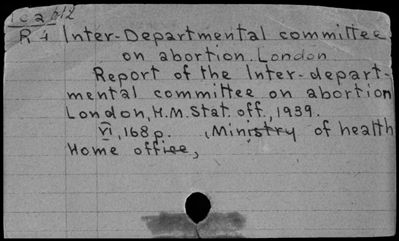 R4 Inter-Departmental committee
on abortion. London
Report of the Inter-depart-
mental committee on abortion
London, H.M. Stat. off., 1939.
vi, 168 p. (Ministry of health
Home office,